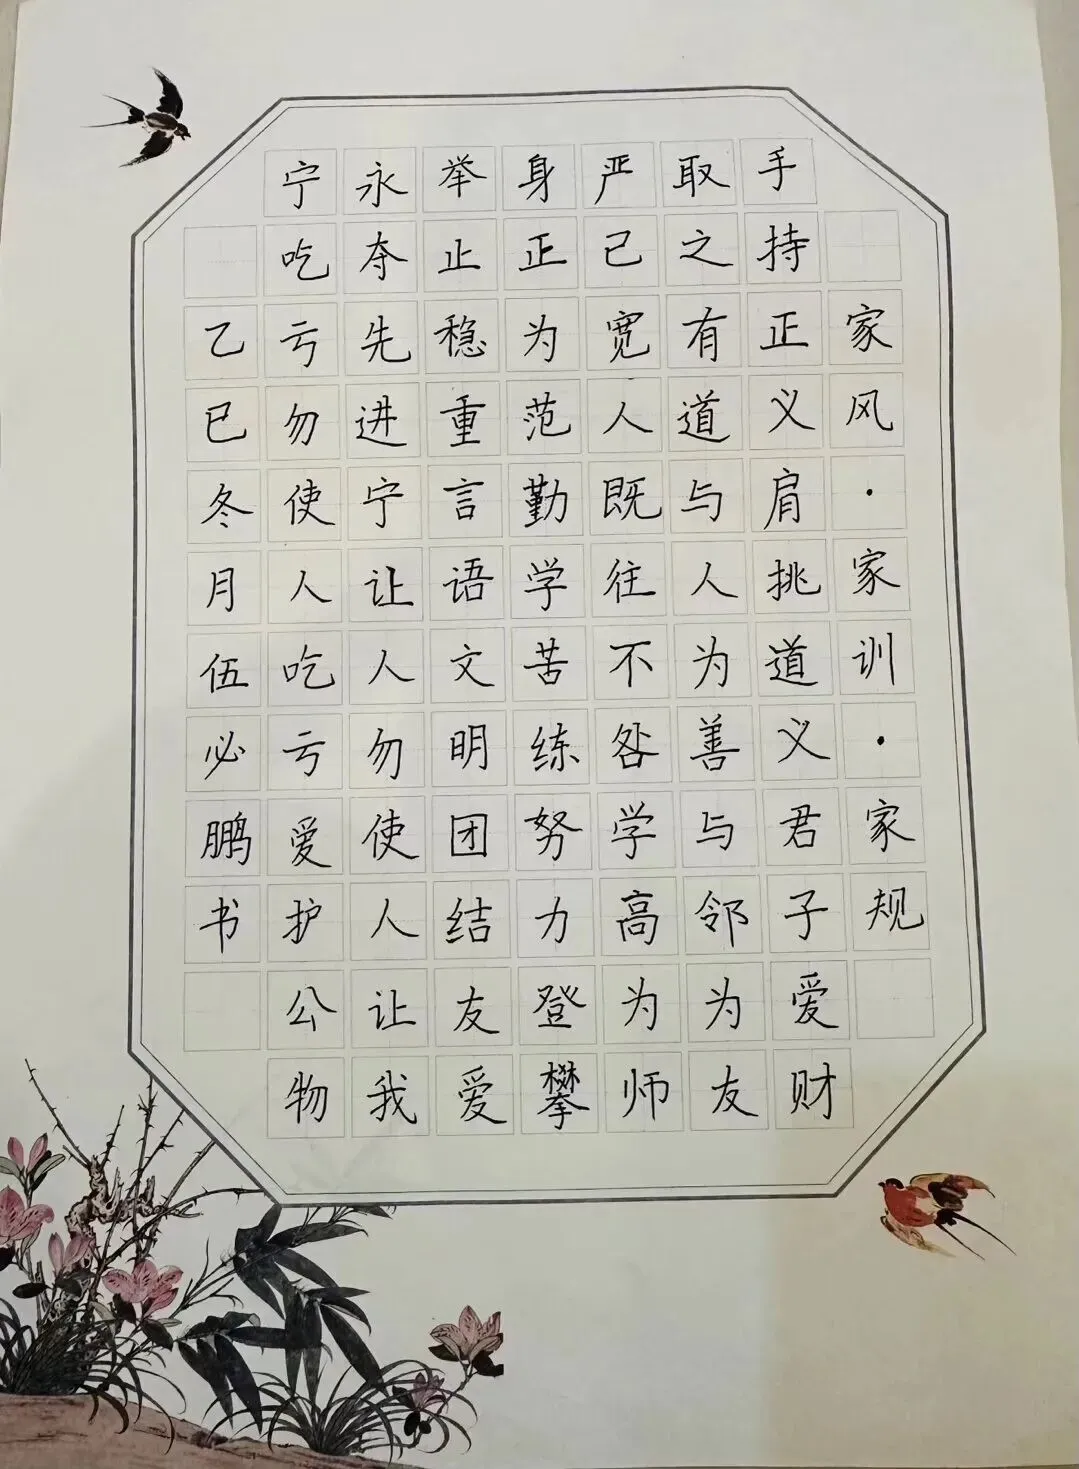 家风·家训·家规
手持正义肩挑道义君子爱财
取之有道与人为善与邻为友
严己宽人既往不咎学高为师
身正为范勤学苦练努力登攀
举止稳重言语文明团结友爱
永夺先进宁让人勿使人让我
宁吃亏勿使人吃亏爱护公物
乙巳冬月伍必鹏书